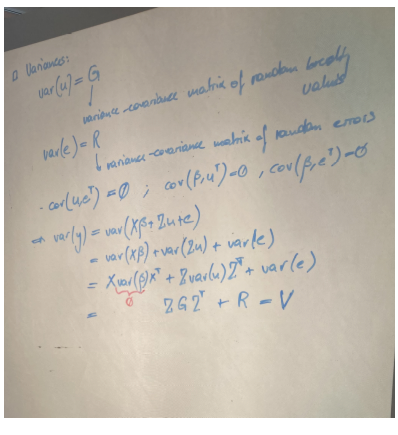 □ Variances:
var(u) = G
↓ variance-covariance matrix of random breeding values
var(e) = R
↳ variance-covariance matrix of random errors
· cov(u,eᵀ) = ∅ ; cov(β,uᵀ)=∅ , cov(β,eᵀ)=∅
⇒ var(y) = var(Xβ + Zu + e)
= var(Xβ) + var(Zu) + var(e)
= X var(β) Xᵀ + Z var(u) Zᵀ + var(e)
∅
= ZGZᵀ + R = V